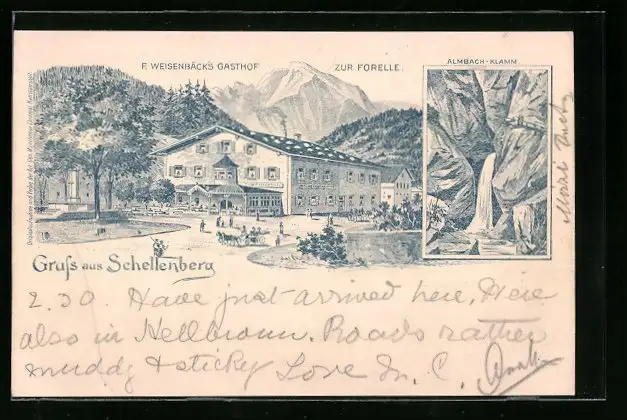 F. WEISENBÄCK'S GASTHOF ZUR FORELLE.
ALMBACH-KLAMM.
Gruss aus Schellenberg
2.30. Have just arrived here, Were
also in Hellbrunn. Roads rather
muddy & sticky Love M. C.